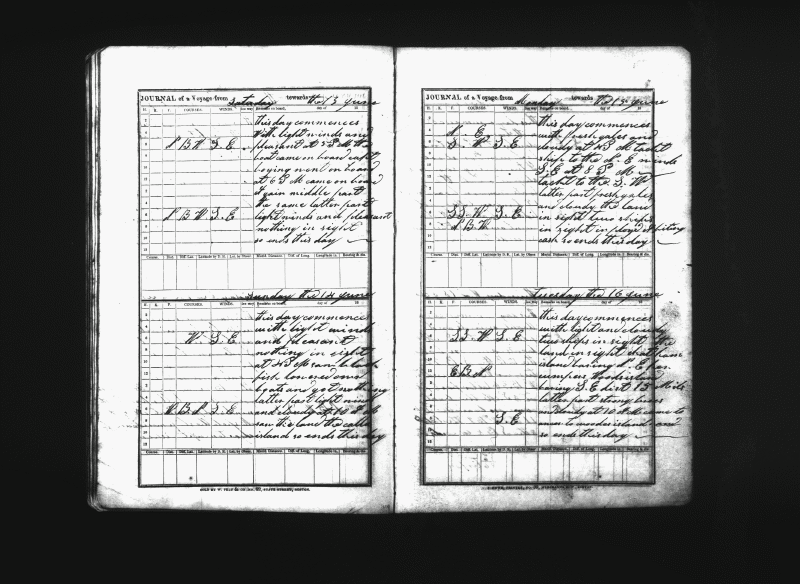 JOURNAL of a Voyage from Saturday towards the 13 June
H. K. F. COURSES. WINDS. Remarks on board, day of 18
this day commences
With light winds and
S B W S. E pleasant at 3 P M the
boat came on board
went on board
at 6 P M came on board
again middle part
the same latter part
S B W S. E light winds and pleasant
nothing in sight
so ends this day
Course. Dist. Diff. Lat. Latitude by D. R. Lat. by Obser. Merid. Distance. Diff. of Long. Longitude in. Bearing & dis.
Sunday the 14 June
H. K. F. COURSES. WINDS. Remarks on board, day of 18
this day commences
with light winds
W. S. E and pleasant
nothing in sight
at 4 P M saw black
fish lowered our
boats and got nothing
latter part light winds
S. E and cloudy at 10 A M
saw the land
island so ends this day
Course. Dist. Diff. Lat. Latitude by D. R. Lat. by Obser. Merid. Distance. Diff. of Long. Longitude in. Bearing & dis.
JOURNAL of a Voyage from Monday towards the 15 June
H. K. F. COURSES. WINDS. Remarks on board, day of 18
this day commences
N. E with fresh gales and
S. W S. E cloudy at 4 P M tackt
ship to the N. E winds
S. E at 8 P M
tackt to the S. W
latter part fresh gales
and cloudy the land
S S. W S. E in sight two ships
S B W in sight
so ends this day
Course. Dist. Diff. Lat. Latitude by D. R. Lat. by Obser. Merid. Distance. Diff. of Long. Longitude in. Bearing & dis.
Tuesday the 16 June
H. K. F. COURSES. WINDS. Remarks on board, day of 18
this day commences
with light and cloudy
S S. W S. E two ships in sight the
land in sight chatham
island baring
E B N
baring S. E dist 15 Mile
latter part strong
and cloudy at 10 A M came to
S. E island and
so ends this day
Course. Dist. Diff. Lat. Latitude by D. R. Lat. by Obser. Merid. Distance. Diff. of Long. Longitude in. Bearing & dis.